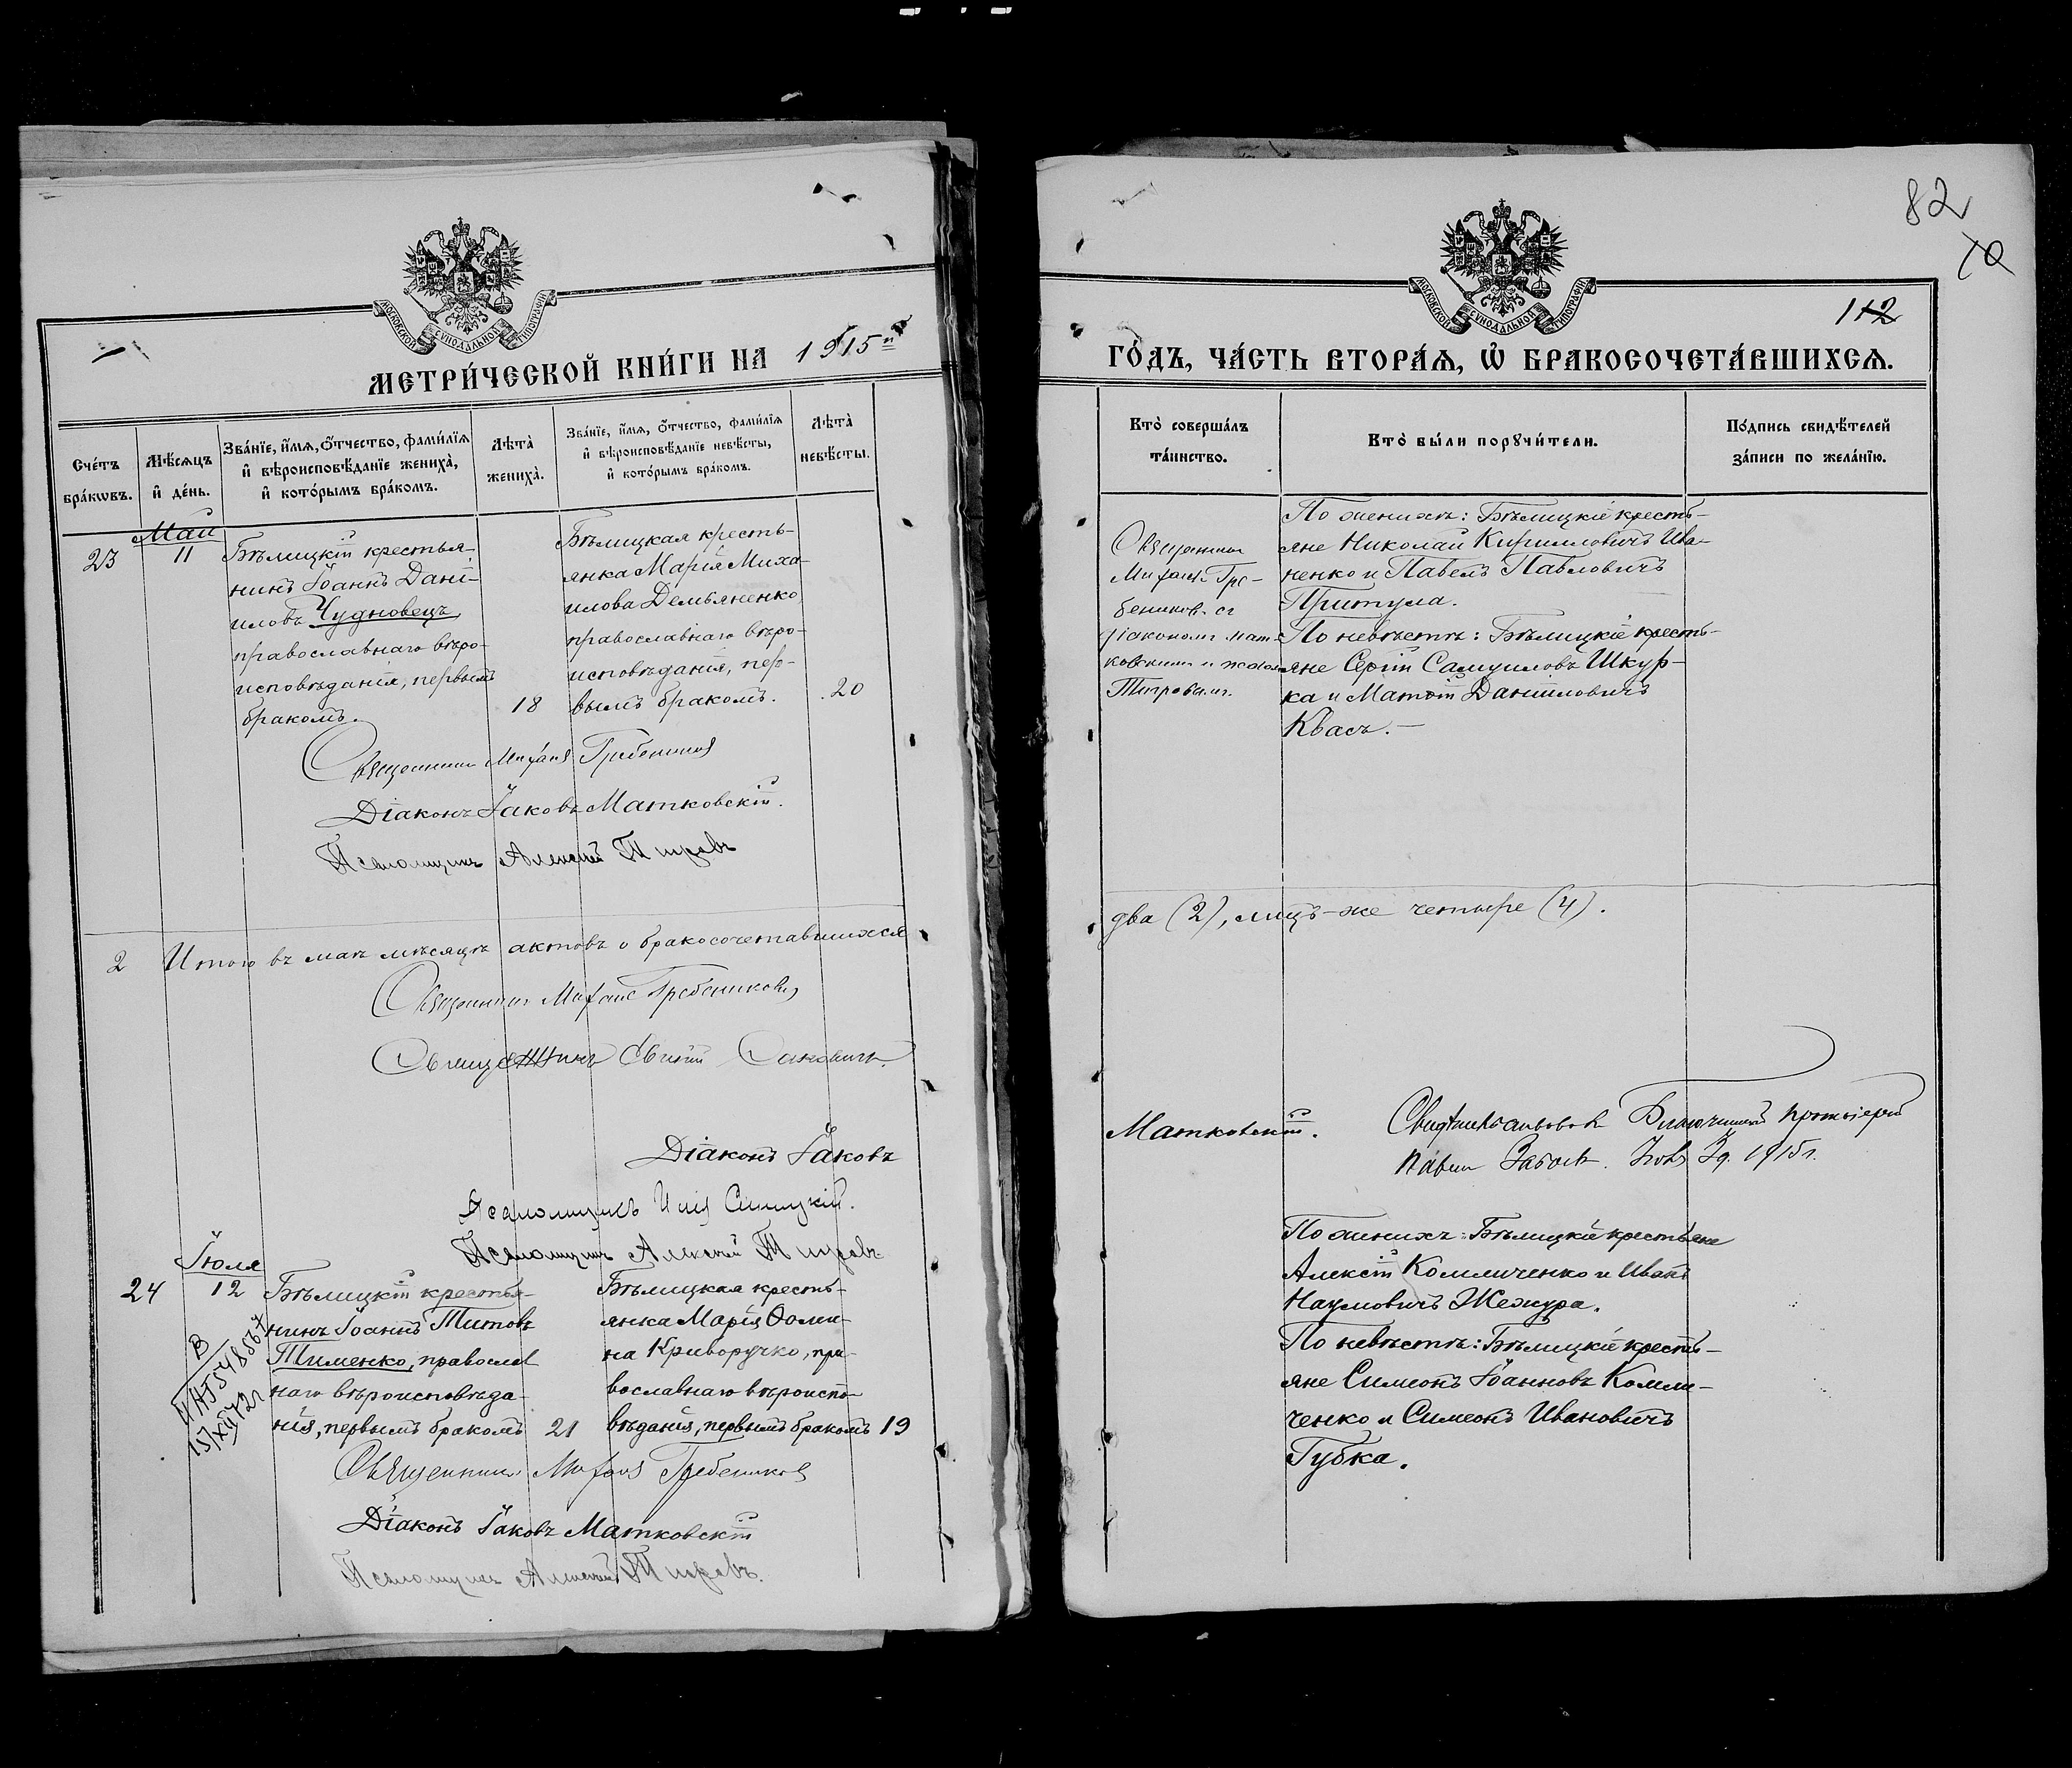 МОСКОВСКОЙ СѴНОДАЛЬНОЙ ТИПОГРАФІИ
МЕТРИ́ЧЕСКОЙ КНИ́ГИ НА 1915й
Сче́тъ бра́кѡвъ.
Мѣ́сяцъ и҆ де́нь.
Зва́нїе, и҆́мѧ, ѻ҆́тчество, фами́лїѧ
и҆ вѣроисповѣ́данїе жениха̀,
и҆ кото́рымъ бра́комъ.
Лѣта̀ жениха̀.
Зва́нїе, и҆́мѧ, ѻ҆́тчество, фами́лїѧ
и҆ вѣроисповѣ́данїе невѣ́сты,
и҆ кото́рымъ бра́комъ.
Лѣта̀ невѣ́сты.
Май
23
11
Бѣлицкій крестья-
нинъ Іоаннъ Дані-
иловъ Чудновецъ,
православнаго вѣро-
исповѣданія, первымъ
бракомъ.
18
Бѣлицкая кресть-
янка Марія Миха-
илова Демьяненко,
православнаго вѣро-
исповѣданія, пер-
вымъ бракомъ.
20
Священникъ Михаил Гребеников
Діаконъ Іаковъ Матковскій.
Псаломщикъ Алексѣй Тигровъ
2 Итого въ маѣ мѣсяцѣ актовъ о бракосочетавшихся
Священникъ Михаил Гребениковъ
Священникъ
Діаконъ Іаковъ
Псаломщикъ Илія
Псаломщикъ Алексѣй Тигровъ
Іюля
24
12
Бѣлицкій крестья-
нинъ Іоаннъ Титовъ
Тименко, православ
наго вѣроисповѣда-
нія, первымъ бракомъ
21
Бѣлицкая кресть-
янка Марія Ѳоми-
на Криворучко, пра-
вославнаго вѣроиспо-
вѣданія, первымъ бракомъ
19
В
НЈ 548567
15/XII 72г
Священникъ Михаил Гребеников
Діаконъ Іаковъ Матковскій
Псаломщикъ Алексѣй Тигровъ.
82
10
112
МОСКОВСКОЙ СѴНОДАЛЬНОЙ ТИПОГРАФІИ
ГО́ДЪ, ЧА́СТЬ ВТОРА́Ѧ, Ѽ БРАКОСОЧЕТА́ВШИХСѦ.
Кто̀ соверша́лъ
та́инство.
Кто̀ бы́ли порꙋчи́тели.
По́дпись свидѣ́телей
за́писи по жела́нїю.
Священник
Михаил Гре-
беников съ
діакономъ Мат-
ковскимъ и псалом
Тигровымъ.
По женихѣ: Бѣлицкіе кресть-
яне Николай Кирилловичъ Ива-
ненко и Павелъ Павловичъ
Притула.
По невѣстѣ: Бѣлицкіе кресть-
яне Сергій Самуиловъ Шкур-
ка и Матѳій Даніиловичъ
Квасъ.
два (2), лицъ-же четыре (4).
Матковскій.
Свидѣтельствовалъ Благочинный протоіерей
Павел 1915г.
По женихѣ: Бѣлицкіе крестьяне
Алексій Комличенко и Иванъ
Наумовичъ Жежура.
По невѣстѣ: Бѣлицкіе кресть-
яне Симеонъ Іоанновъ Комли-
ченко и Симеонъ Ивановичъ
Губка.